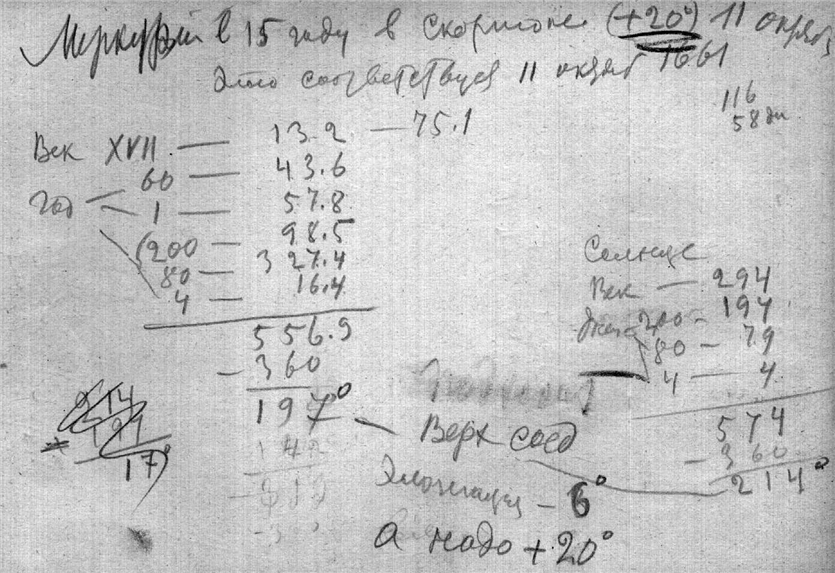 Меркурий в 15 году в Скорпионе (+20°) 11 октяб
Это соответствует 11 октяб 1661
116
58 дн
Век XVII — 13.2 — 75.1
60 — 43.6
Год 1 — 57.8
(200 — 98.5
80 — 327.4
4 — 16.4
556.9
- 360
197°
214
197
17
142
Верх соед
Элонгация - 6°
а надо +20°
Солнце
Век — 294
Дни 200 - 197
80 - 79
4 — 4
574
- 360
214°